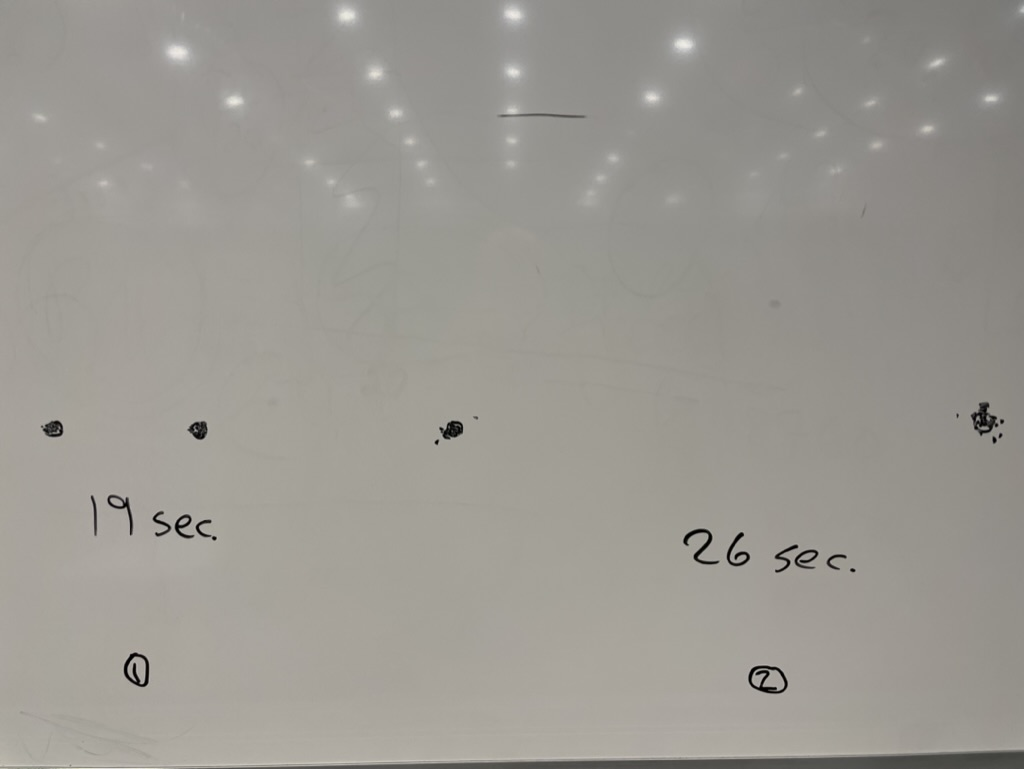 19 sec.
26 sec.
①
②